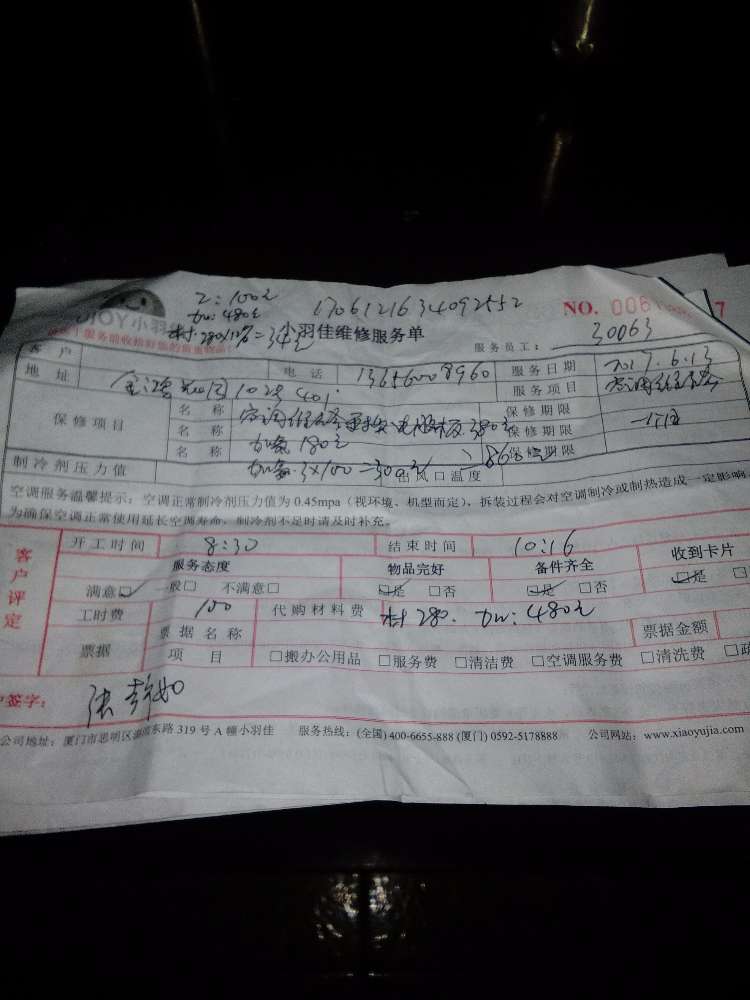 工:100元
dw:480元
1706121634092552
JOY小羽
小羽佳维修服务单
NO. 006
7
服务员工: 30063
客户
地址
401
电话
13656008960
服务日期
2017.6.13
服务项目
空调维修
保修项目
名称
空调维修更换电脑板380元
保修期限
名称
加氟180元
保修期限
名称
3×100=300元
保修期限
制冷剂压力值
出风口温度
空调服务温馨提示:空调正常制冷剂压力值为 0.45mpa(视环境、机型而定),拆装过程会对空调制冷或制热造成一定影响,
为确保空调正常使用延长空调寿命,制冷剂不足时请及时补充。
客户评定
开工时间 8:30 结束时间 10:16
服务态度 物品完好 备件齐全 收到卡片
满意☑ 一般□ 不满意□ ☑是 □否 ☑是 □否 ☑是 □
工时费 100 代购材料费 材280. dw:480元
票据
票据名称
票据金额
项目 □搬办公用品 □服务费 □清洁费 □空调服务费 □清洗费 □疏
户签字:
公司地址:厦门市思明区
东路 319 号 A 幢小羽佳 服务热线:(全国) 400-6655-888 (厦门) 0592-5178888 公司网站:www.xiaoyujia.com